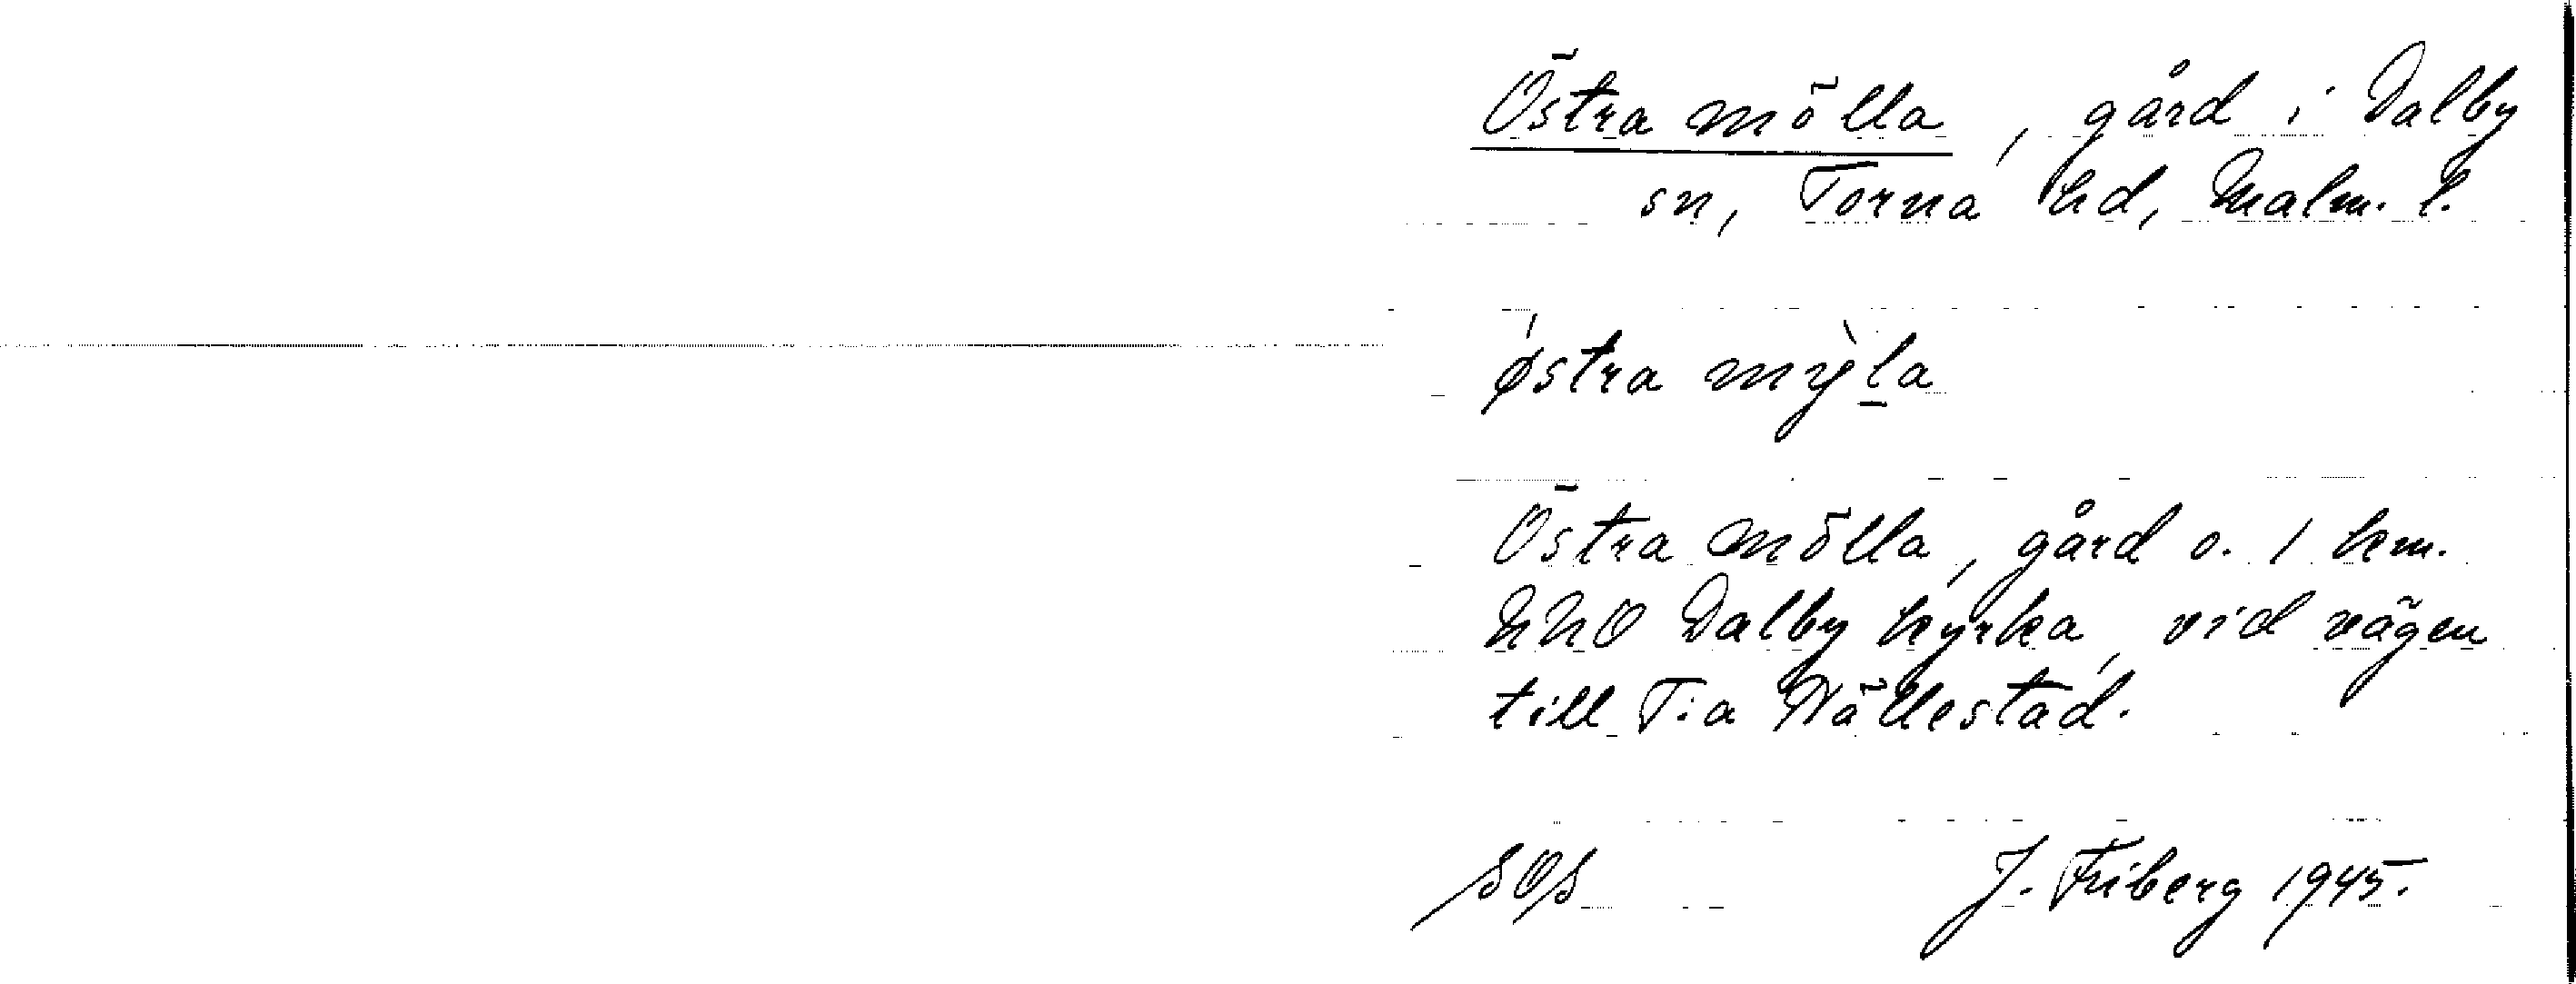 Östra mölla, gård i Dalby
sn, Torna hd, Malm. l.
østra mỳla
Östra mölla, gård o. 1 km.
NNO Dalby kyrka, vid vägen
till T:a Hällestad.
SOS J. Friberg 1945.